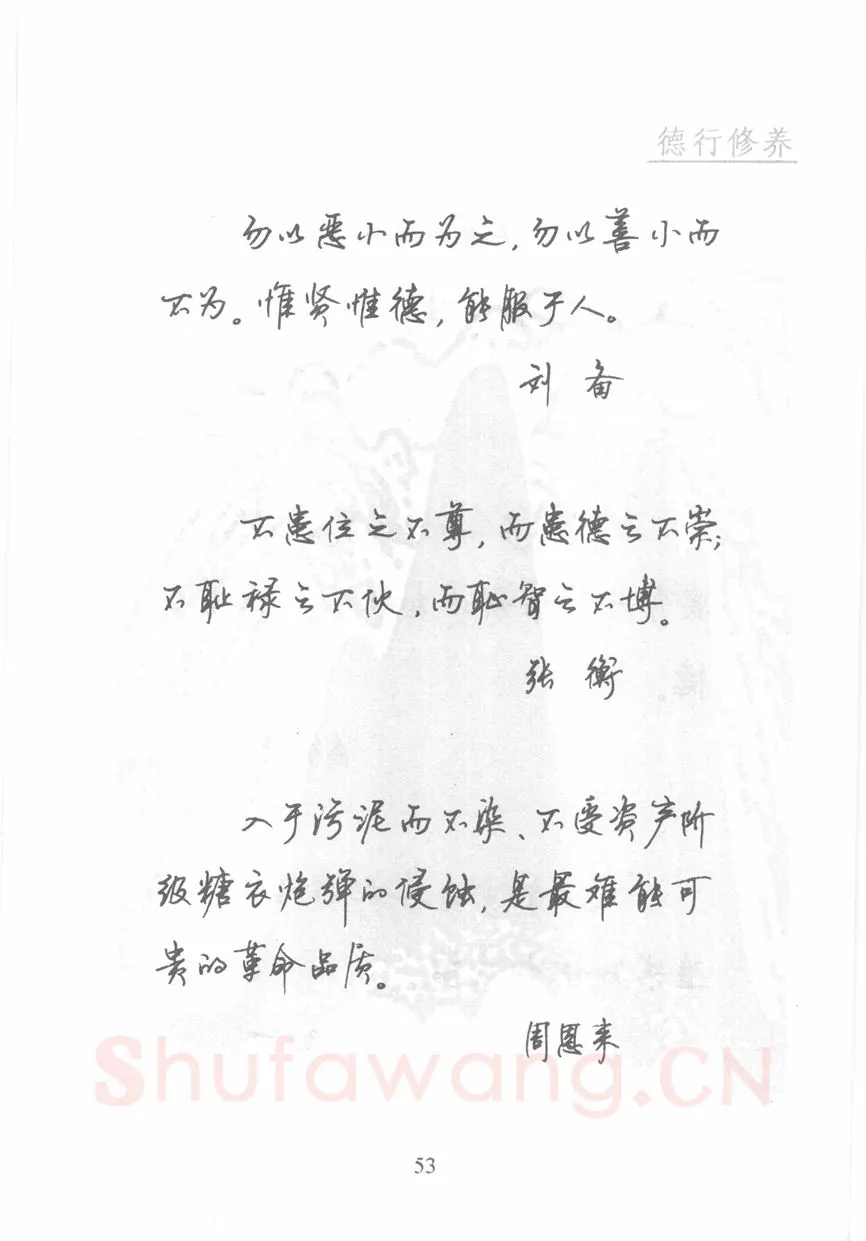 德行修养
勿以恶小而为之,勿以善小而
不为。惟贤惟德,能服于人。
刘备
不患位之不尊,而患德之不崇;
不耻禄之不伙,而耻智之不博。
张衡
入于污泥而不染、不受资产阶
级糖衣炮弹的侵蚀,是最难能可
贵的革命品质。
周恩来
Shufawang.CN
53